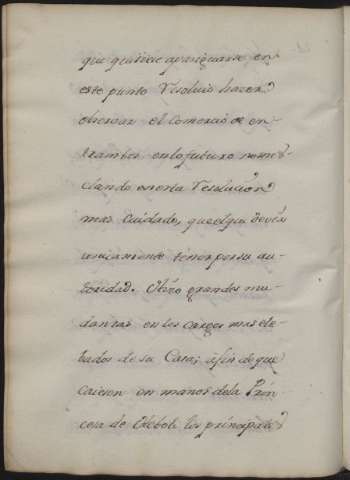 que quisiere apaziguarse en
este punto Resoluió hacer
obseruar el Comercio de en-
trambos en lo futuro no mez-
clando en esta Resolucion
mas Cuidado, que el que deuia
unicamente tener por su au-
toridad. Otros grandes mu-
danzas en los cargos mas ele-
bados de su Casa; a fin de que
caiesen en manos de la Prin-
cesa de Eboli los principales